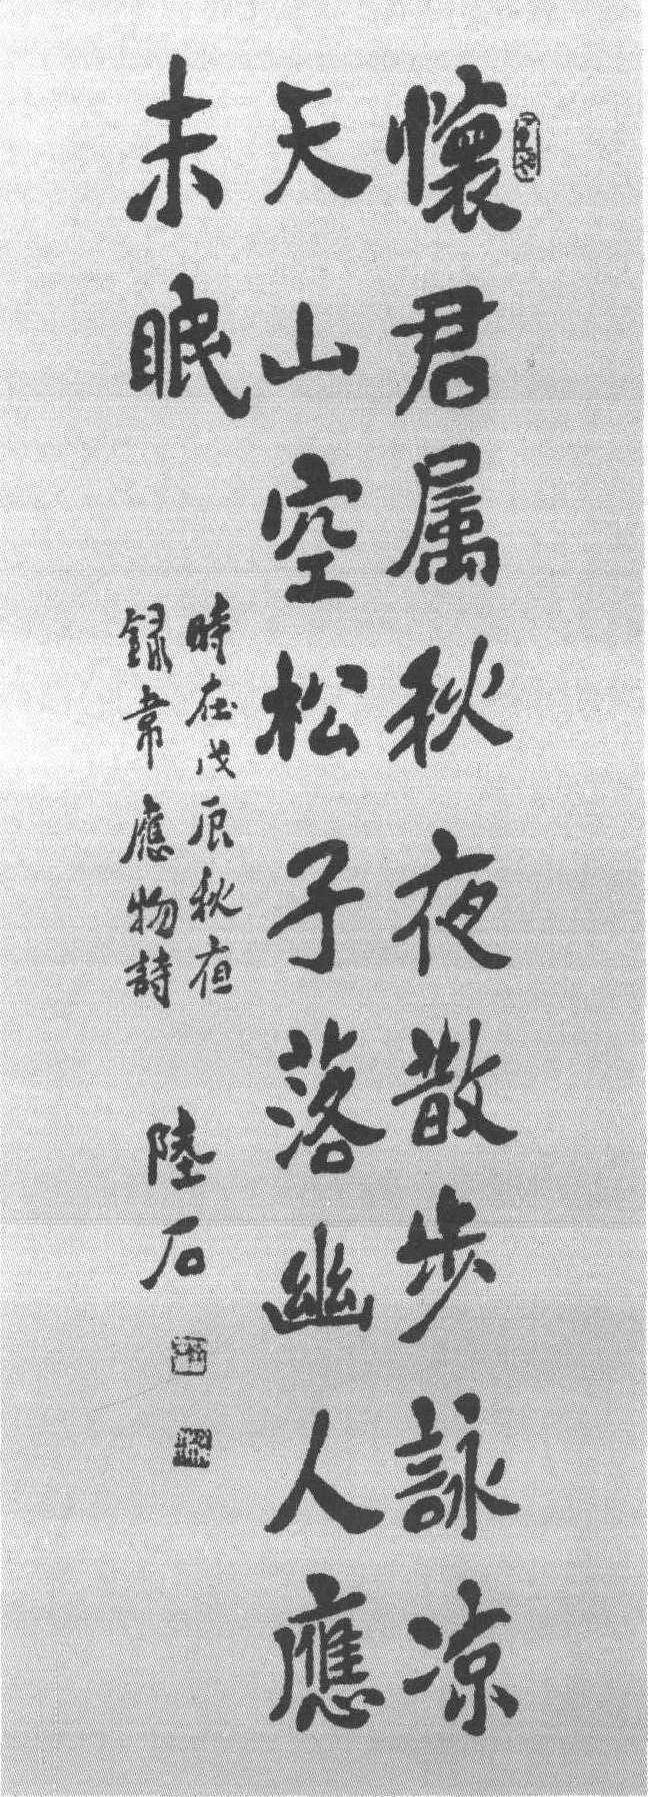 懷君属秋夜散步詠凉
天山空松子落幽人應
未眠
時在戊辰秋夜
録韋應物詩
陸石